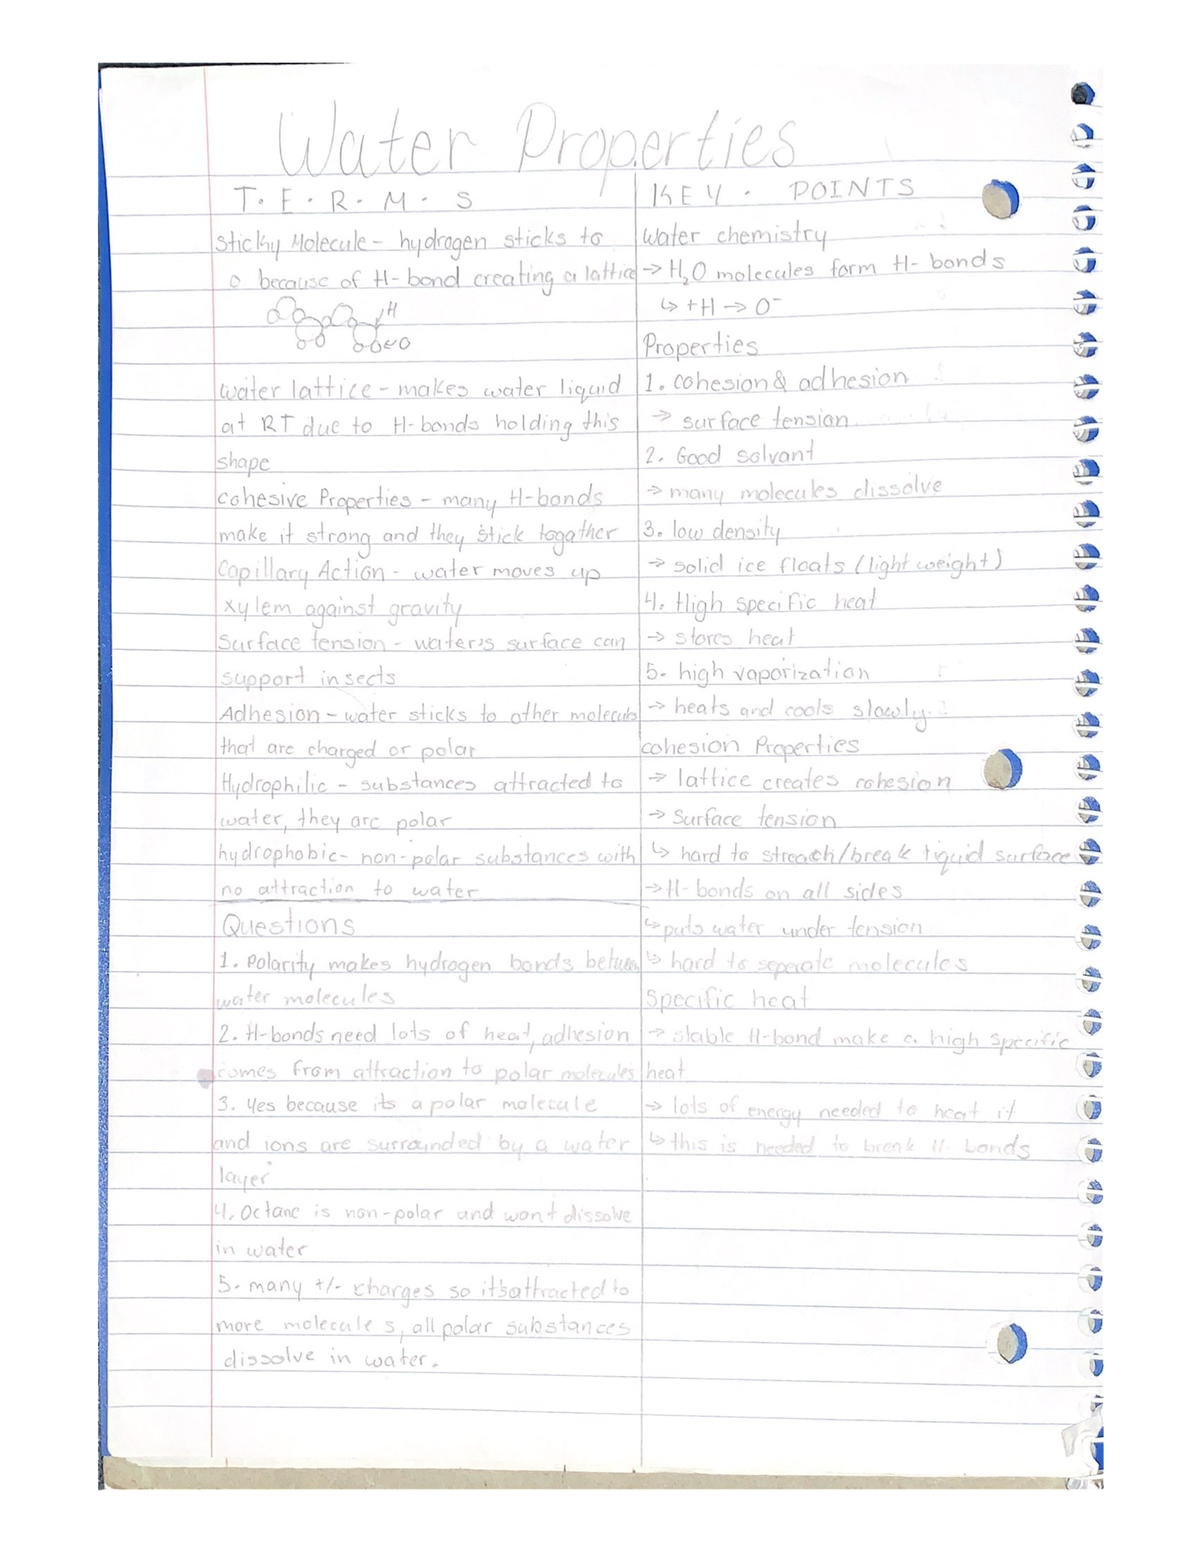 Water Properties
T. E. R. M. S
Sticky Molecule - hydrogen sticks to
o because of H-bond creating a lattice
H
O
water lattice - makes water liquid
at RT due to H-bonds holding this
shape
Cohesive Properties - many H-bonds
make it strong and they stick togather
Capillary Action - water moves up
xylem against gravity
Surface tension - water's surface can
support insects
Adhesion - water sticks to other molecules
that are charged or polar
Hydrophilic - substances attracted to
water, they are polar
hydrophobic- non-polar substances with
no attraction to water
Questions
1. Polarity makes hydrogen bonds between
water molecules
2. H-bonds need lots of heat, adhesion
comes from attraction to polar molecules
3. Yes because its a polar molecule
and ions are surrounded by a water
layer
4. Octane is non-polar and wont dissolve
in water
5. many +/- charges so it's attracted to
more molecule s, all polar substances
dissolve in water.
KEY . POINTS
water chemistry
→ H₂O molecules form H- bonds
↳ +H → O⁻
Properties
1. cohesion & adhesion
→ surface tension
2. Good solvant
→ many molecules dissolve
3. low density
→ solid ice floats (light weight)
4. High specific heat
→ stores heat
5. high vaporization
→ heats and cools slowly.
cohesion Properties
→ lattice creates cohesion
→ Surface tension
↳ hard to streach/break liquid surface
→ H-bonds on all sides
↳ puts water under tension
↳ hard to seperate molecules
Specific heat
→ stable H-bond make a high specific
heat
→ lots of energy needed to heat it
↳ this is needed to break H- bonds